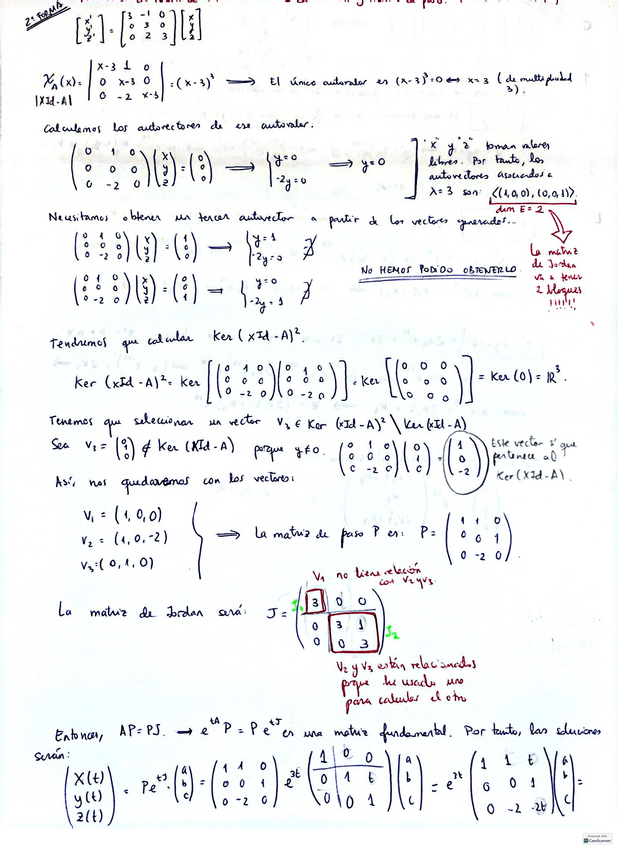 2ª FORMA
[x' y' z'] = [3 -1 0; 0 3 0; 0 2 3] [x y z]
χ_A(x) = |x-3 1 0; 0 x-3 0; 0 -2 x-3| = (x-3)³ ⟹ El único autovalor es (x-3)³=0 ↔ x=3 (de multiplicidad 3).
|XId-A|
Calculemos los autovectores de ese autovalor.
(0 1 0; 0 0 0; 0 -2 0) (x y z) = (0 0 0) ⟶ {y=0; -2y=0 ⟶ y=0
"x" y "z" toman valores
libres. Por tanto, los
autovectores asociados a
λ=3 son: <(1,0,0), (0,0,1)>.
dim E = 2
Necesitamos obtener un tercer autovector a partir de los vectores generados...
(0 1 0; 0 0 0; 0 -2 0) (x y z) = (1 0 0) ⟶ {y=1; -2y=0 ∄
(0 1 0; 0 0 0; 0 -2 0) (x y z) = (0 0 1) ⟶ {y=0; -2y=1 ∄
NO HEMOS PODIDO OBTENERLO.
La matriz
de Jordan
va a tener
2 bloques
!!!!!!
Tendremos que calcular Ker (xId-A)².
Ker (xId-A)² = Ker [(0 1 0; 0 0 0; 0 -2 0) (0 1 0; 0 0 0; 0 -2 0)] = Ker [(0 0 0; 0 0 0; 0 0 0)] = Ker (0) = ℝ³.
Tenemos que seleccionar un vector v₃ ∈ Ker (xId-A)² \ Ker (xId-A)
Sea v₃ = (0 1 0) ∉ Ker (XId-A) porque y≠0. (0 1 0; 0 0 0; 0 -2 0) (0 1 0) = (1 0 -2)
Este vector sí que
pertenece al
Ker (xId-A).
Así, nos quedaremos con los vectores:
v₁ = (1,0,0)
v₂ = (1,0,-2)
v₃ = (0,1,0)
⟹ La matriz de paso P es: P = (1 1 0; 0 0 1; 0 -2 0).
v₁ no tiene relación
con v₂ y v₃.
La matriz de Jordan será: J = (3 0 0; 0 3 1; 0 0 3)
J₁
J₂
v₂ y v₃ están relacionados
porque he usado uno
para calcular el otro
Entonces, AP=PJ. ⟶ e^{tA} P = P e^{tJ} es una matriz fundamental. Por tanto, las soluciones
serán:
(x(t) y(t) z(t)) = Pe^{tJ}·(a b c) = (1 1 0; 0 0 1; 0 -2 0) e^{3t} (1 0 0; 0 1 t; 0 0 1) (a b c) = e^{3t} (1 1 t; 0 0 1; 0 -2 -2t) (a b c) =
CamScanner